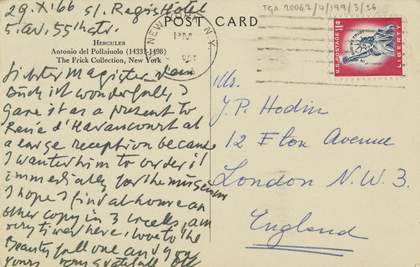 29.X.66 St. Regis Hotel
5.av. 55th str.
POST CARD
HERCULES
Antonio del Pollaiuolo (1433?-1498)
The Frick Collection, New York
TGA 20062/4/199/3/26
NEW YORK, N.Y.
PM
OCT
U.S. POSTAGE 11¢
LIBERTY
Lieber Magister
Book ist wonderfull I
gave it as a present to
René d'Harancourt at
a large reception because
I wanted him to order it
immediately for the museum
I hope I find at home an
other copy in 3 weeks, am
very tired here. Love to the
beautyfull one and you
yours very gratefull OK
Mr.
J.P. Hodin
12 Eton Avenue
London N.W.3.
England